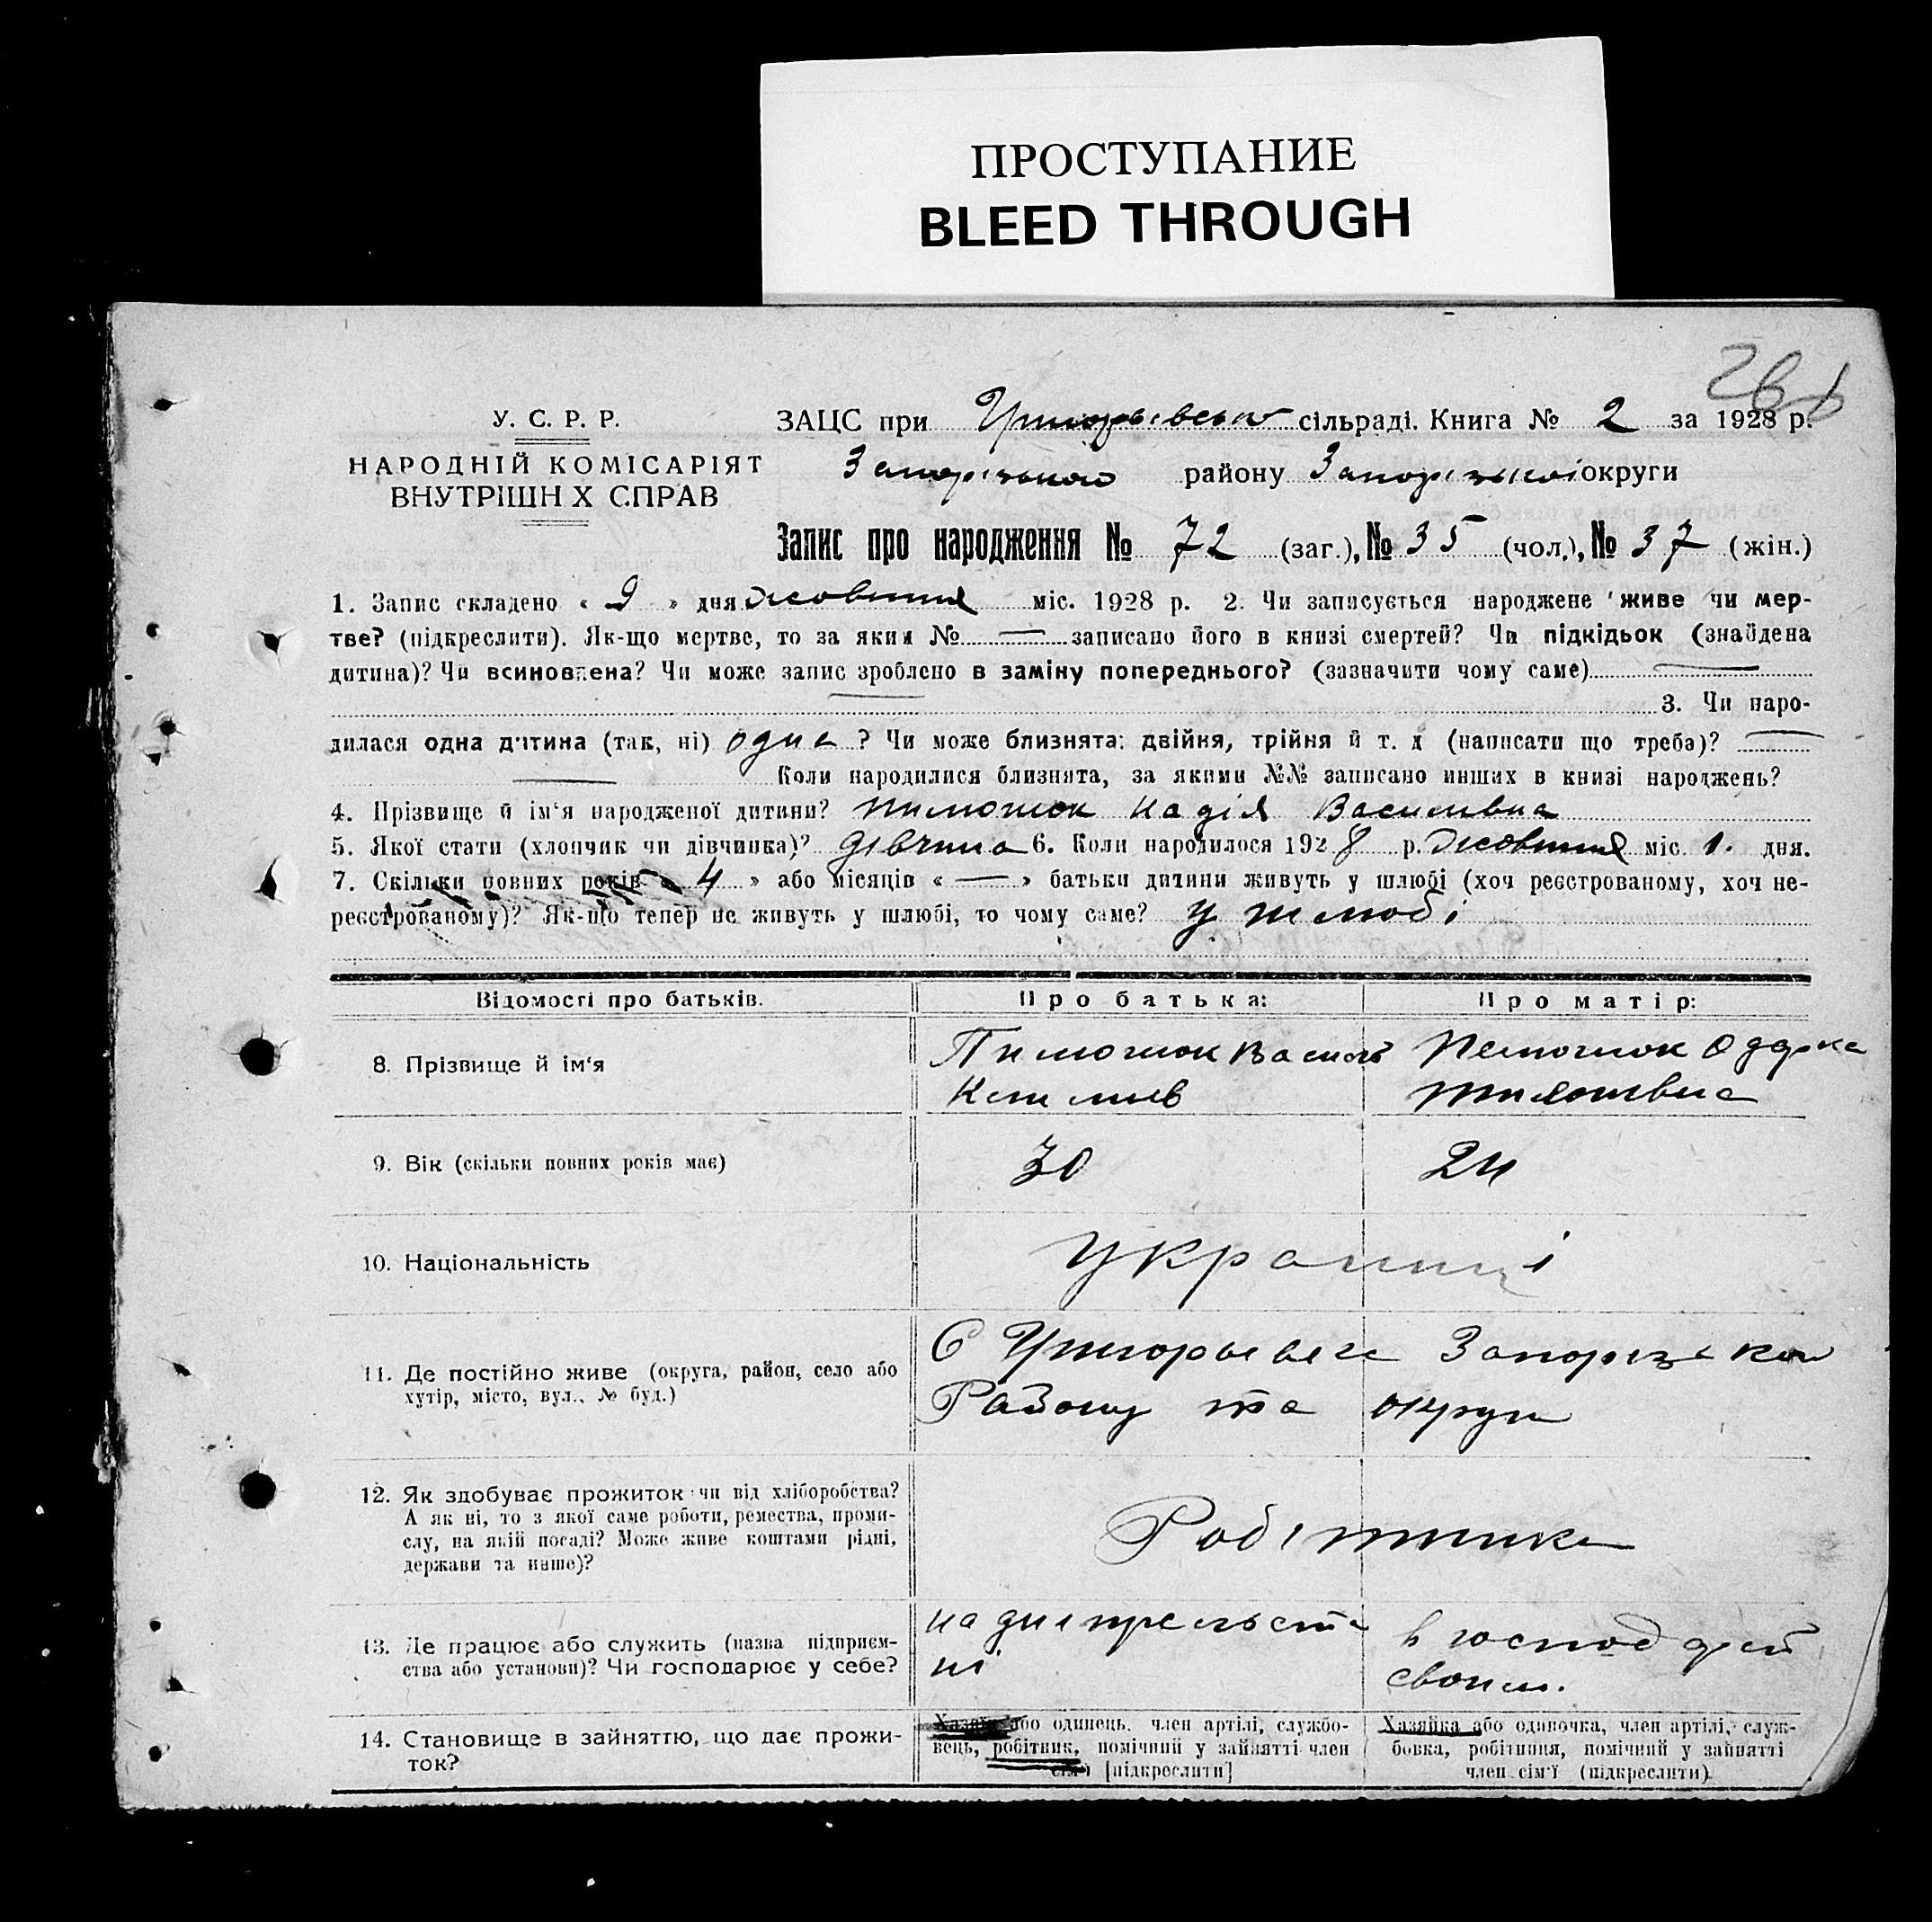 ПРОСТУПАНИЕ
BLEED THROUGH
У. С. Р. Р.
НАРОДНІЙ КОМІСАРІЯТ
ВНУТРІШН Х СПРАВ
ЗАЦС при сільраді. Книга № 2 за 1928 р.
Запорізького району Запорізької округи
Запис про народження № 72 (заг.), № 35 (чол.), № 37 (жін.)
1. Запис складено « 9 » дня жовтня міс. 1928 р. 2. Чи записується народжене живе чи мер-
тве? (підкреслити). Як-що мертве, то за яким № — записано його в книзі смертей? Чи підкідьок (знайдена
дитина)? Чи всиновлена? Чи може запис зроблено в заміну попереднього? (зазначити чому саме) —
— 3. Чи наро-
дилася одна дитина (так, ні) одна ? Чи може близнята: двійня, трійня й т. д (написати що треба)? —
— Коли народилися близнята, за якими №№ записано инших в книзі народжень?
4. Прізвище й ім'я народженої дитини? Надія Василівна
5. Якої стати (хлопчик чи дівчинка)? дівчина 6. Коли народилося 1928 р. жовтня міс. 1. дня.
7. Скільки повних років « 4 » або місяців « — » батьки дитини живуть у шлюбі (хоч реєстрованому, хоч не-
реєстрованому)? Як-що тепер не живуть у шлюбі, то чому саме? у шлюбі
Відомості про батьків.
Про батька:
Про матір:
8. Прізвище й ім'я
Василь
Одарка
9. Вік (скільки повних років має)
30
24
10. Національність
українці
11. Де постійно живе (округа, район, село або
хутір, місто, вул., № буд.)
С Запорізького
Району та округи
12. Як здобуває прожиток чи від хліборобства?
А як ні, то з якої саме роботи, ремества, проми-
слу, на якій посаді? Може живе коштами рідні,
держави та инше)?
Робітника
13. Де працює або служить (назва підприєм-
ства або установи)? Чи господарює у себе?
на
в господ
своим.
14. Становище в зайняттю, що дає прожи-
ток?
Хазяїн або одинець, член артілі, службо-
вець, робітник, помічний у зайнятті член
сім'ї [підкреслити]
Хазяйка або одиночка, член артілі, служ-
бовка, робітниця, помічний у зайнятті
член сім'ї (підкреслити)